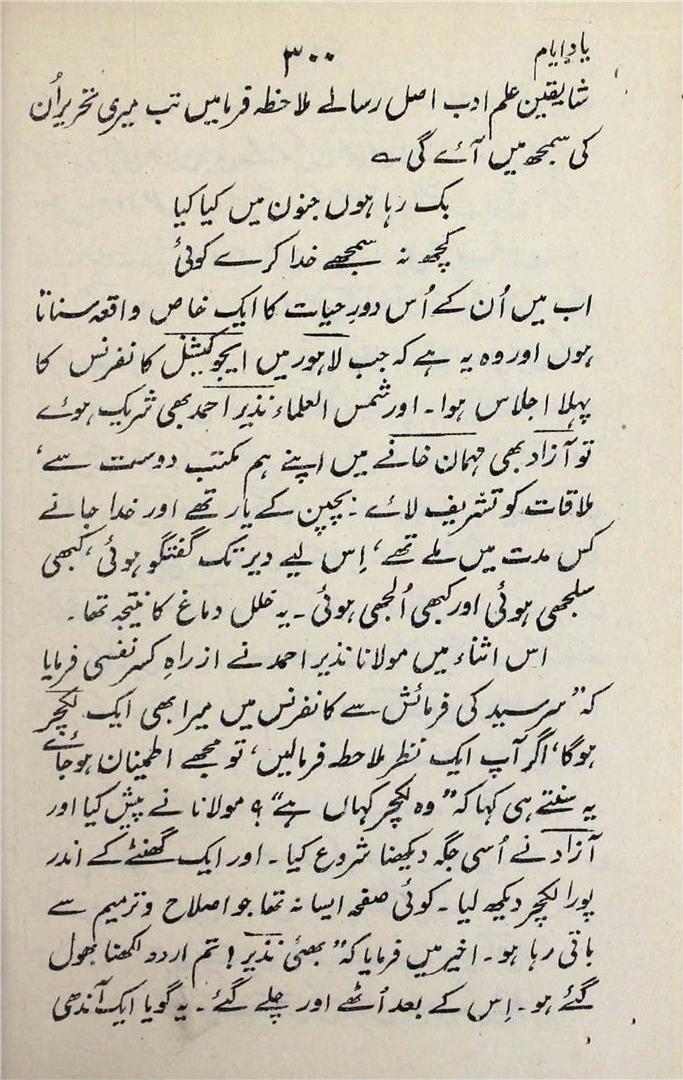 یادِ ایام
۳۰۰
شایقین علم ادب اصل رسالے ملاحظہ فرمایں تب میری تحریر اُن
کی سمجھ میں آئے گی ؎
بک رہا ہوں جنون میں کیا کیا
کچھ نہ سمجھے خدا کرے کوئی
اب میں اُن کے اُس دورِ حیات کا ایک خاص واقعہ سناتا
ہوں اور وہ یہ ہے کہ جب لاہور میں ایجوکیشنل کانفرنس کا
پہلا اجلاس ہوا۔ اور شمس العلماء نذیر احمد بھی شریک ہوئے
تو آزاد بھی مہمان خانے میں اپنے ہم مکتب دوست سے،
ملاقات کو تشریف لائے۔ بچپن کے یار تھے اور خدا جانے
کس مدت میں ملے تھے، اِس لیے دیر تک گفتگو ہوئی، کبھی
سلجھی ہوئی اور کبھی اُلجھی ہوئی۔ یہ خلل دماغ کا نتیجہ تھا۔
اس اثناء میں مولانا نذیر احمد نے از راہِ کسر نفسی فرمایا
کہ ”سرسید کی فرمائش سے کانفرنس میں میرا بھی ایک لکچر
ہوگا، اگر آپ ایک نظر ملاحظہ فرمالیں، تو مجھے اطمینان ہوجائے
یہ سنتے ہی کہا کہ ”وہ لکچر کہاں ہے“؟ مولانا نے پیش کیا اور
آزاد نے اُسی جگہ دیکھنا شروع کیا۔ اور ایک گھنٹے کے اندر
پورا لکچر دیکھ لیا۔ کوئی صفحہ ایسا نہ تھا جو اصلاح و ترمیم سے
باقی رہا ہو۔ اخیر میں فرمایا کہ ”بھئی نذیر! تم اردو لکھنا بھول
گئے ہو۔ اِس کے بعد اُٹھے اور چلے گئے۔ یہ گویا ایک آندھی